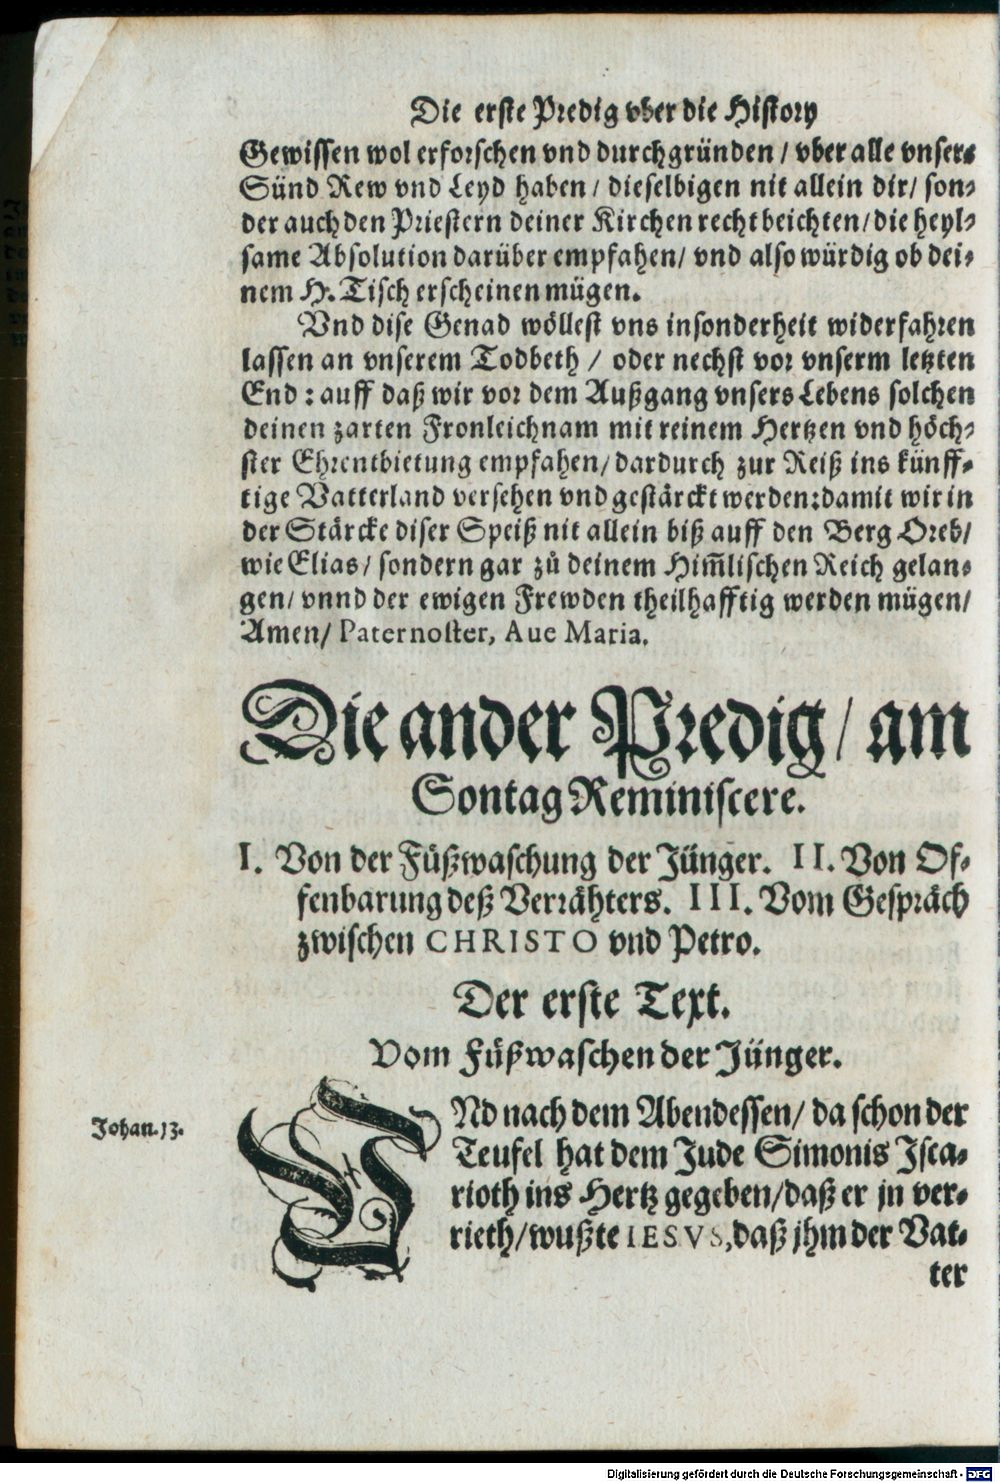 Die erste Predig vber die History
Gewissen wol erforschen vnd durchgründen / vber alle vnsere
Sünd Rew vnd Leyd haben / dieselbigen nit allein dir/ son-
der auch den Priestern deiner Kirchen recht beichten/ die heyl-
same Absolution darüber empfahen/ vnd also würdig ob dei-
nem H. Tisch erscheinen mügen.
Vnd dise Genad wöllest vns insonderheit widerfahren
lassen an vnserem Todbeth / oder nechst vor vnserm letzten
End : auff daß wir vor dem Außgang vnsers Lebens solchen
deinen zarten Fronleichnam mit reinem Hertzen vnd höch-
ster Ehrentbietung empfahen/ dardurch zur Reiß ins künff-
tige Vatterland versehen vnd gestärckt werden: damit wir in
der Stärcke diser Speiß nit allein biß auff den Berg Oreb/
wie Elias/ sondern gar zů deinem Him̃lischen Reich gelan-
gen/ vnnd der ewigen Frewden theilhafftig werden mügen/
Amen/ Paternoster, Aue Maria.
Die ander Predig/ am
Sontag Reminiscere.
I. Von der Füßwaschung der Jünger. II. Von Of-
fenbarung deß Verrähters. III. Vom Gespräch
zwischen CHRISTO vnd Petro.
Der erste Text.
Vom Füßwaschen der Jünger.
Johan. 13.
VNd nach dem Abendessen/ da schon der
Teufel hat dem Jude Simonis Isca-
rioth ins Hertz gegeben/ daß er jn ver-
rieth/ wußte IESVS, daß jhm der Vat-
ter
Digitalisierung gefördert durch die Deutsche Forschungsgemeinschaft - DFG